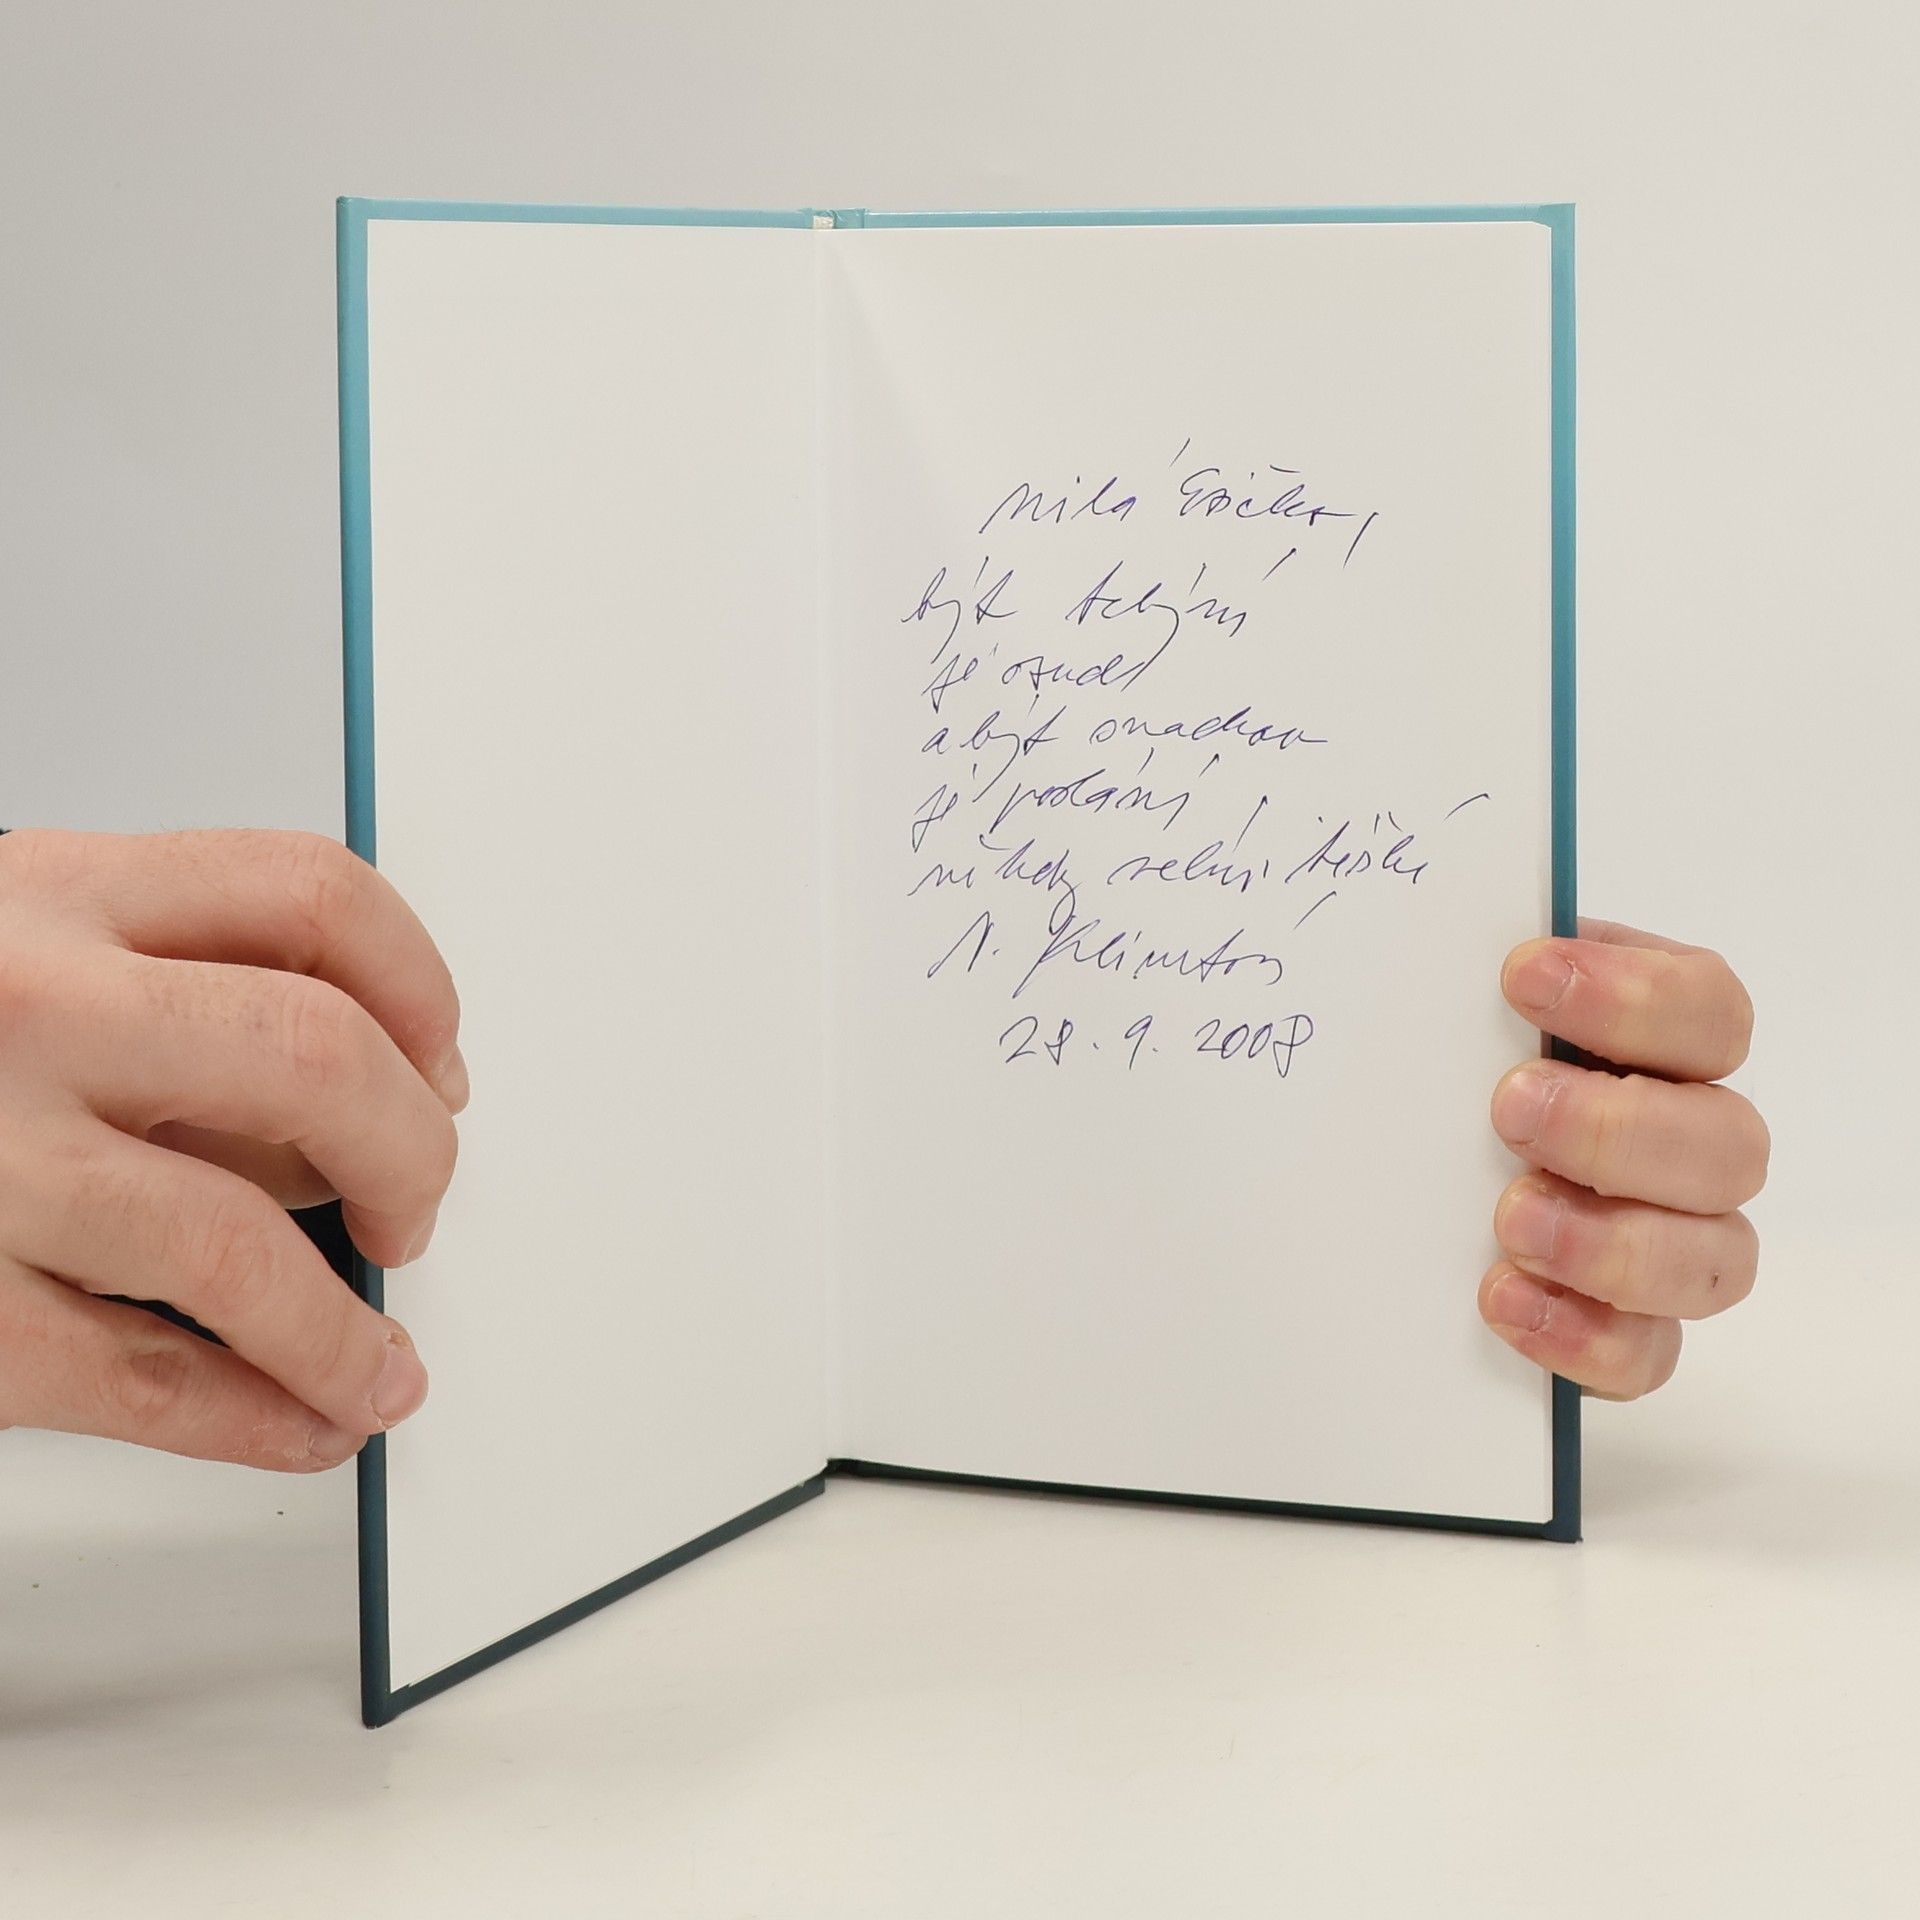 milá Evičko,
být tchýní
je osud
a být snachou
je poslání,
někdy velmi těžké
N. Klimtová
28. 9. 2008